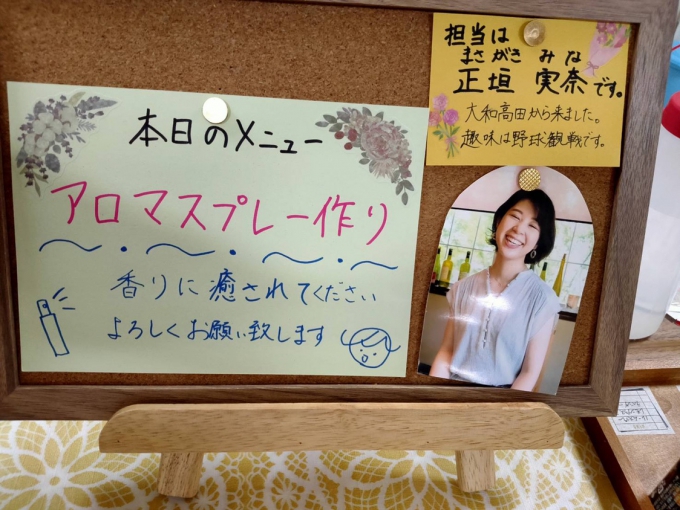 本日のメニュー
アロマスプレー作り
香りに癒されてください
よろしくお願い致します
担当は
まさがき みな
正垣 実奈です。
大和高田から来ました。
趣味は野球観戦です。